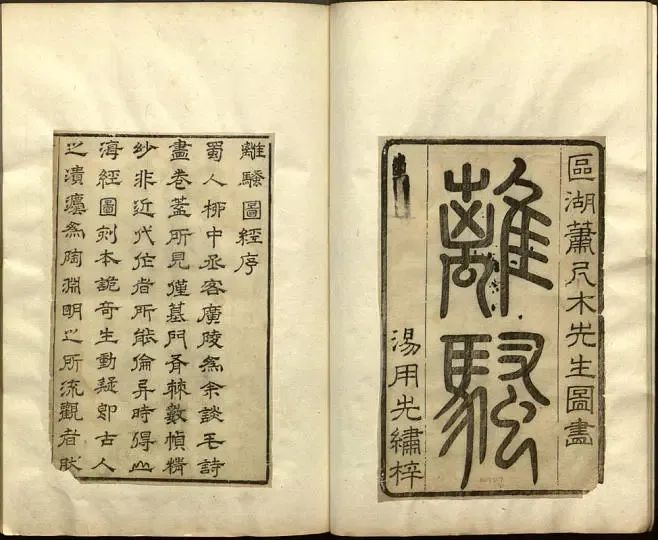 區湖蕭尺木先生圖畫
離騷
湯用先繡梓
離騷圖經序
蜀人柳中丞客廣陵為余談毛詩
畫卷蓋所見僅墓門斧棘數幀精
玅非近代作者所能倫异時得山
海經圖刻本詭奇生動疑即古人
之遺灋為陶淵明之所流觀者歟